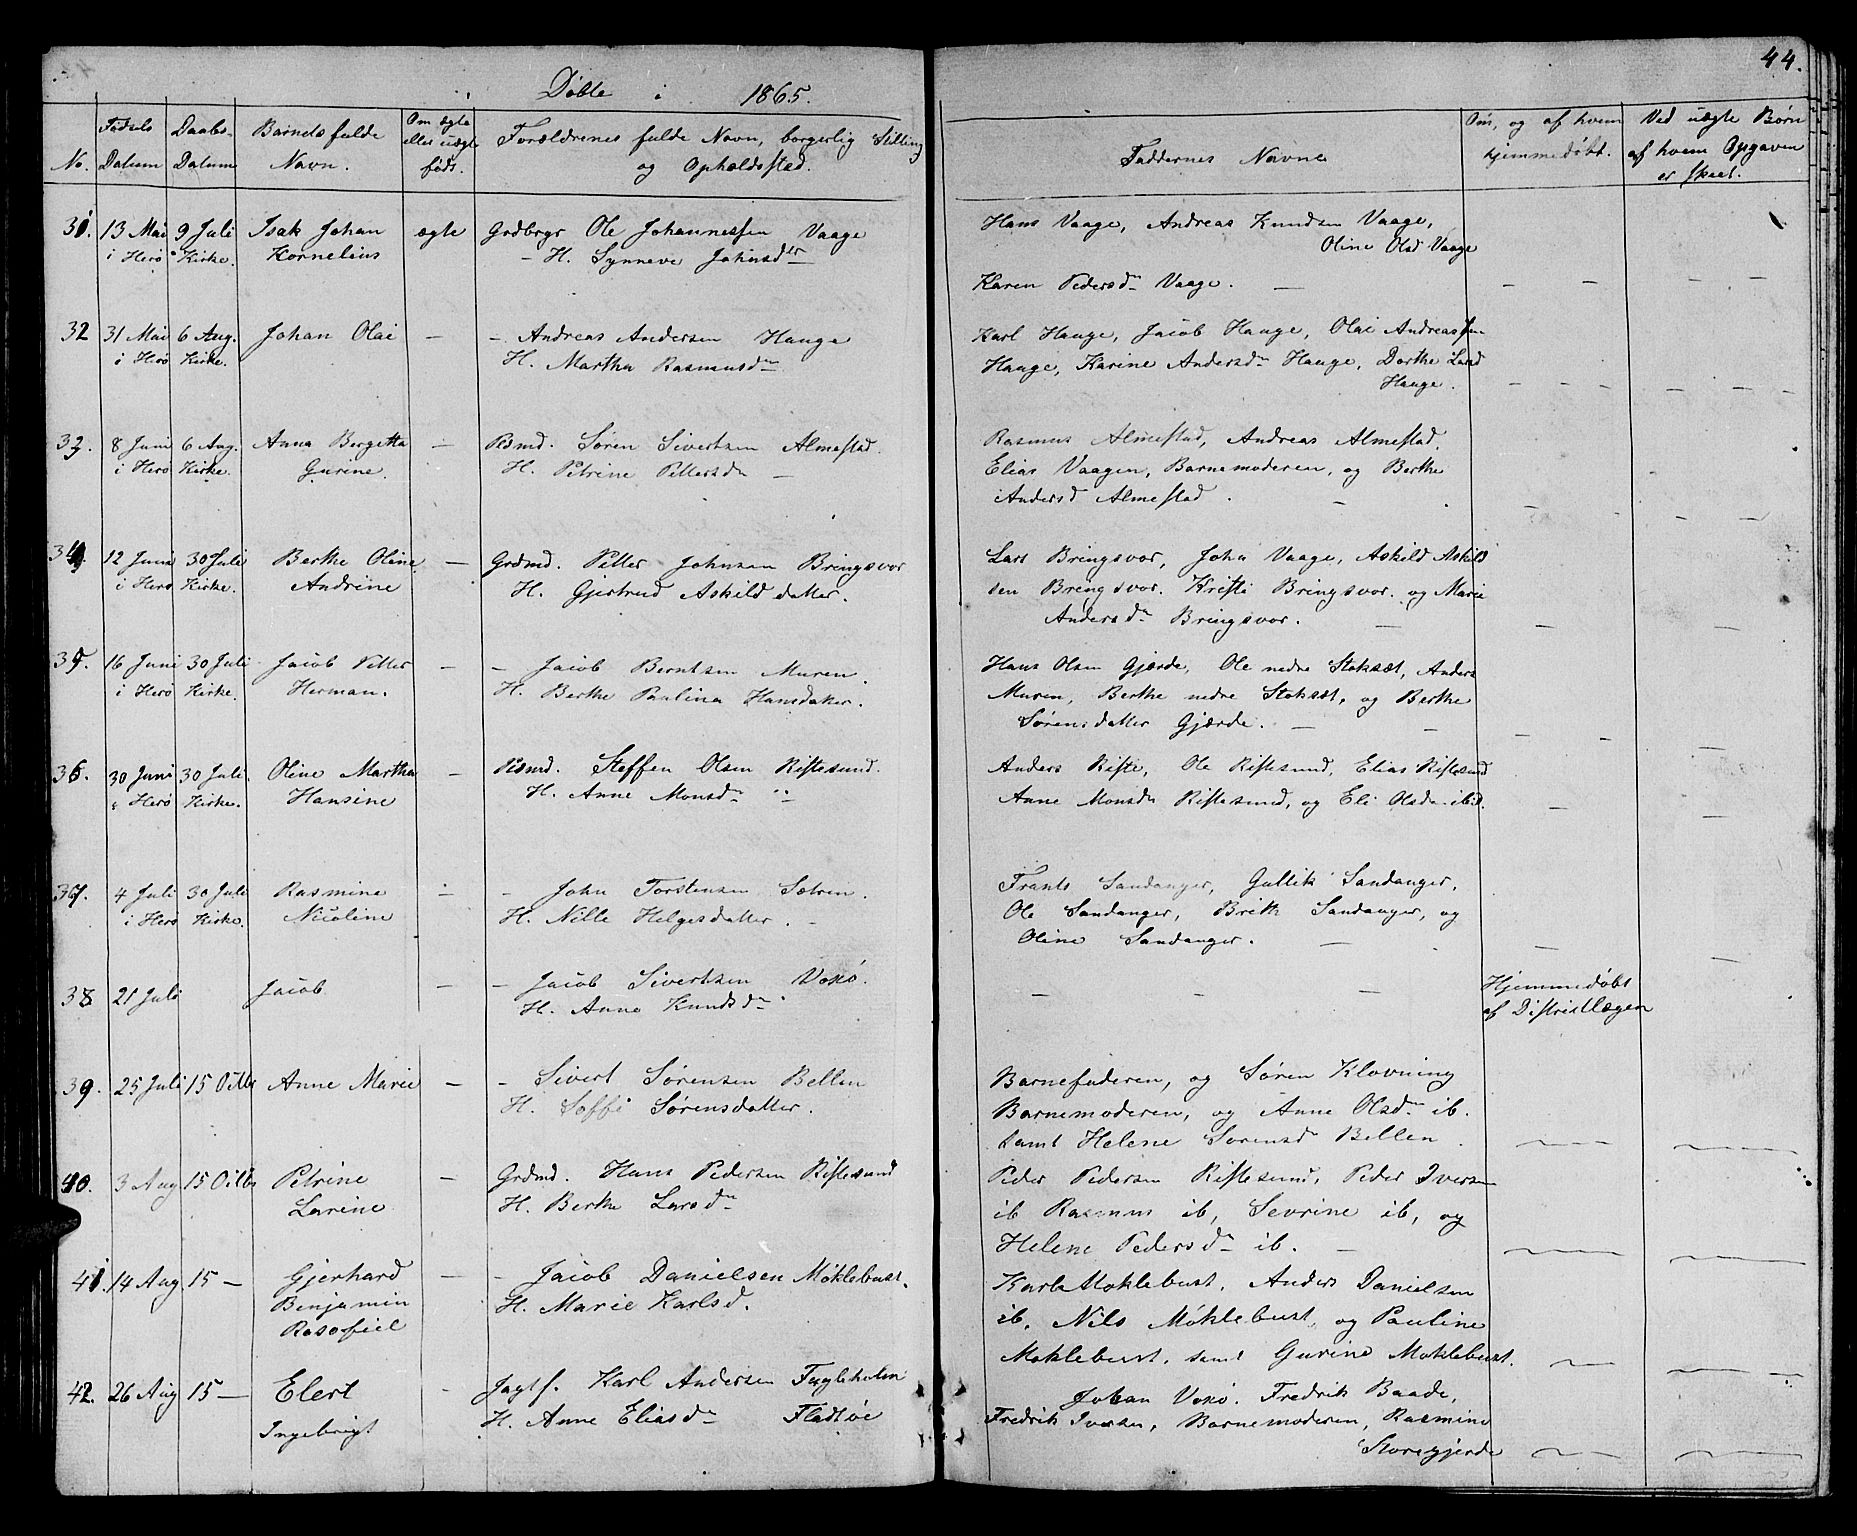 44.
Døbte i 1865.
No.
Fødsels Datum
Daabs- Datum
Barnets fulde Navn.
Om ægte eller uægte født.
Forældrenes fulde Navn, borgerlig Stilling og Opholdsstad.
Faddernes Navne
Om, og af hvem hjemmedøbt.
Ved uægte Børn af hvem Opgaven er skeet.
31. 13 Mai 9 Juli Isak Johan ægte Grdbrgr Ole Johannessen Vaage Hans Vaage, Andreas Knudsen Vaage,
i Herø Kirke. Kornelius - H. Synneve Johnsdtr Oline Olsd Vaage
Karen Pedersdr Vaage. — — — —
32 31 Mai 6 Aug. Johan Olai — - Andreas Andersen Hauge Karl Hauge, Jacob Hauge, Olai Andreassen
i Herø Kirke. H. Martha Rasmusdr Hauge, Karine Andersdr Hauge, Dorthe Larsd
Hauge. — — — — —
33. 8 Juni 6 Aug. Anna Bergitta — Bmd. Søren Sivertsen Almestad. Rasmus Almestad, Andreas Almestad,
i Herø Kirke. Gurine. H. Petrine Pettersdr — Elias Vaagen, Barnemoderen, og Berthe
Andersd Almestad. — — — — —
34. 12 Juni 30 Juli Berthe Oline — Grdmd. Petter Johnsen Bringsvor Lars Bringsvor, John Vaage, Askild Askild
i Herø Kirke. Andrine H. Gjertrud Askilddatter. sen Bringsvor. Kristi Bringsvor. og Marie
Andersdr Bringsvor. — — — — —
35. 16 Juni 30 Juli Jacob Petter — - Jacob Berntsen Muren. Hans Olsen Gjærde, Ole nedre Stoksæt, Anders
i Herø Kirke. Herman. H. Berthe Paulina Hansdatter. Muren, Berthe nedre Stoksæt, og Berthe
Sørensdatter Gjærde. — — — — —
36. 30 Juni 30 Juli Oline Martha — Bmd. Steffen Olsen Riftesund. Anders Rifte, Ole Riftesund, Elias Riftesund
i Herø Kirke. Hansine H. Anne Monsdr " Anne Monsdr Riftesund, og Eli Olsdr ibid. — —
37. 4 Juli 30 Juli Rasmine — - John Torstensen Sætren. Frants Sandanger, Gullik Sandanger,
i Herø Kirke. Nicoline H. Nille Helgesdatter. - Ole Sandanger, Brith Sandanger, og
Oline Sandanger. — — —
38 21 Juli Jacob — - Jacob Sivertsen Voksø. — — — — Hjemmedøbt
H. Anne Knudsdr af Districtlægen
39. 25 Juli 15 Octbr Anne Marie — - Sivert Sørensen Bellen Barnefaderen, og Søren Klovning
H. Soffi Sørensdatter. Barnemoderen, og Anne Olsdr ib.
samt Helene Sørensd Bellen. — —
40. 3 Aug 15 Octbr Petrine — Grdmd. Hans Pedersen Riftesund Peder Pedersen Riftesund, Peder Iversen
Larine H. Berthe Larsdr ib Rasmus ib, Sevrine ib, og
Helene Pedersdr ib. — — —
41. 14 Aug 15 — Gjerhard — - Jacob Danielsen Møklebust. Karl Møklebust, Anders Danielsen
Benjamin H. Marie Karlsd. ib, Nils Møklebust, og Pauline
Rasofiel Møklebust, samt Gurine Møklebust. — —
42. 26 Aug 15 — Elert - Jagtf. Karl Andersen Fugleholm Johan Voksø. Fredrik Baade,
Ingebrigt H. Anne Eliasdr Fladsøe Fredrik Iversen, Barnemoderen, Rasmine
Storegjerde — —